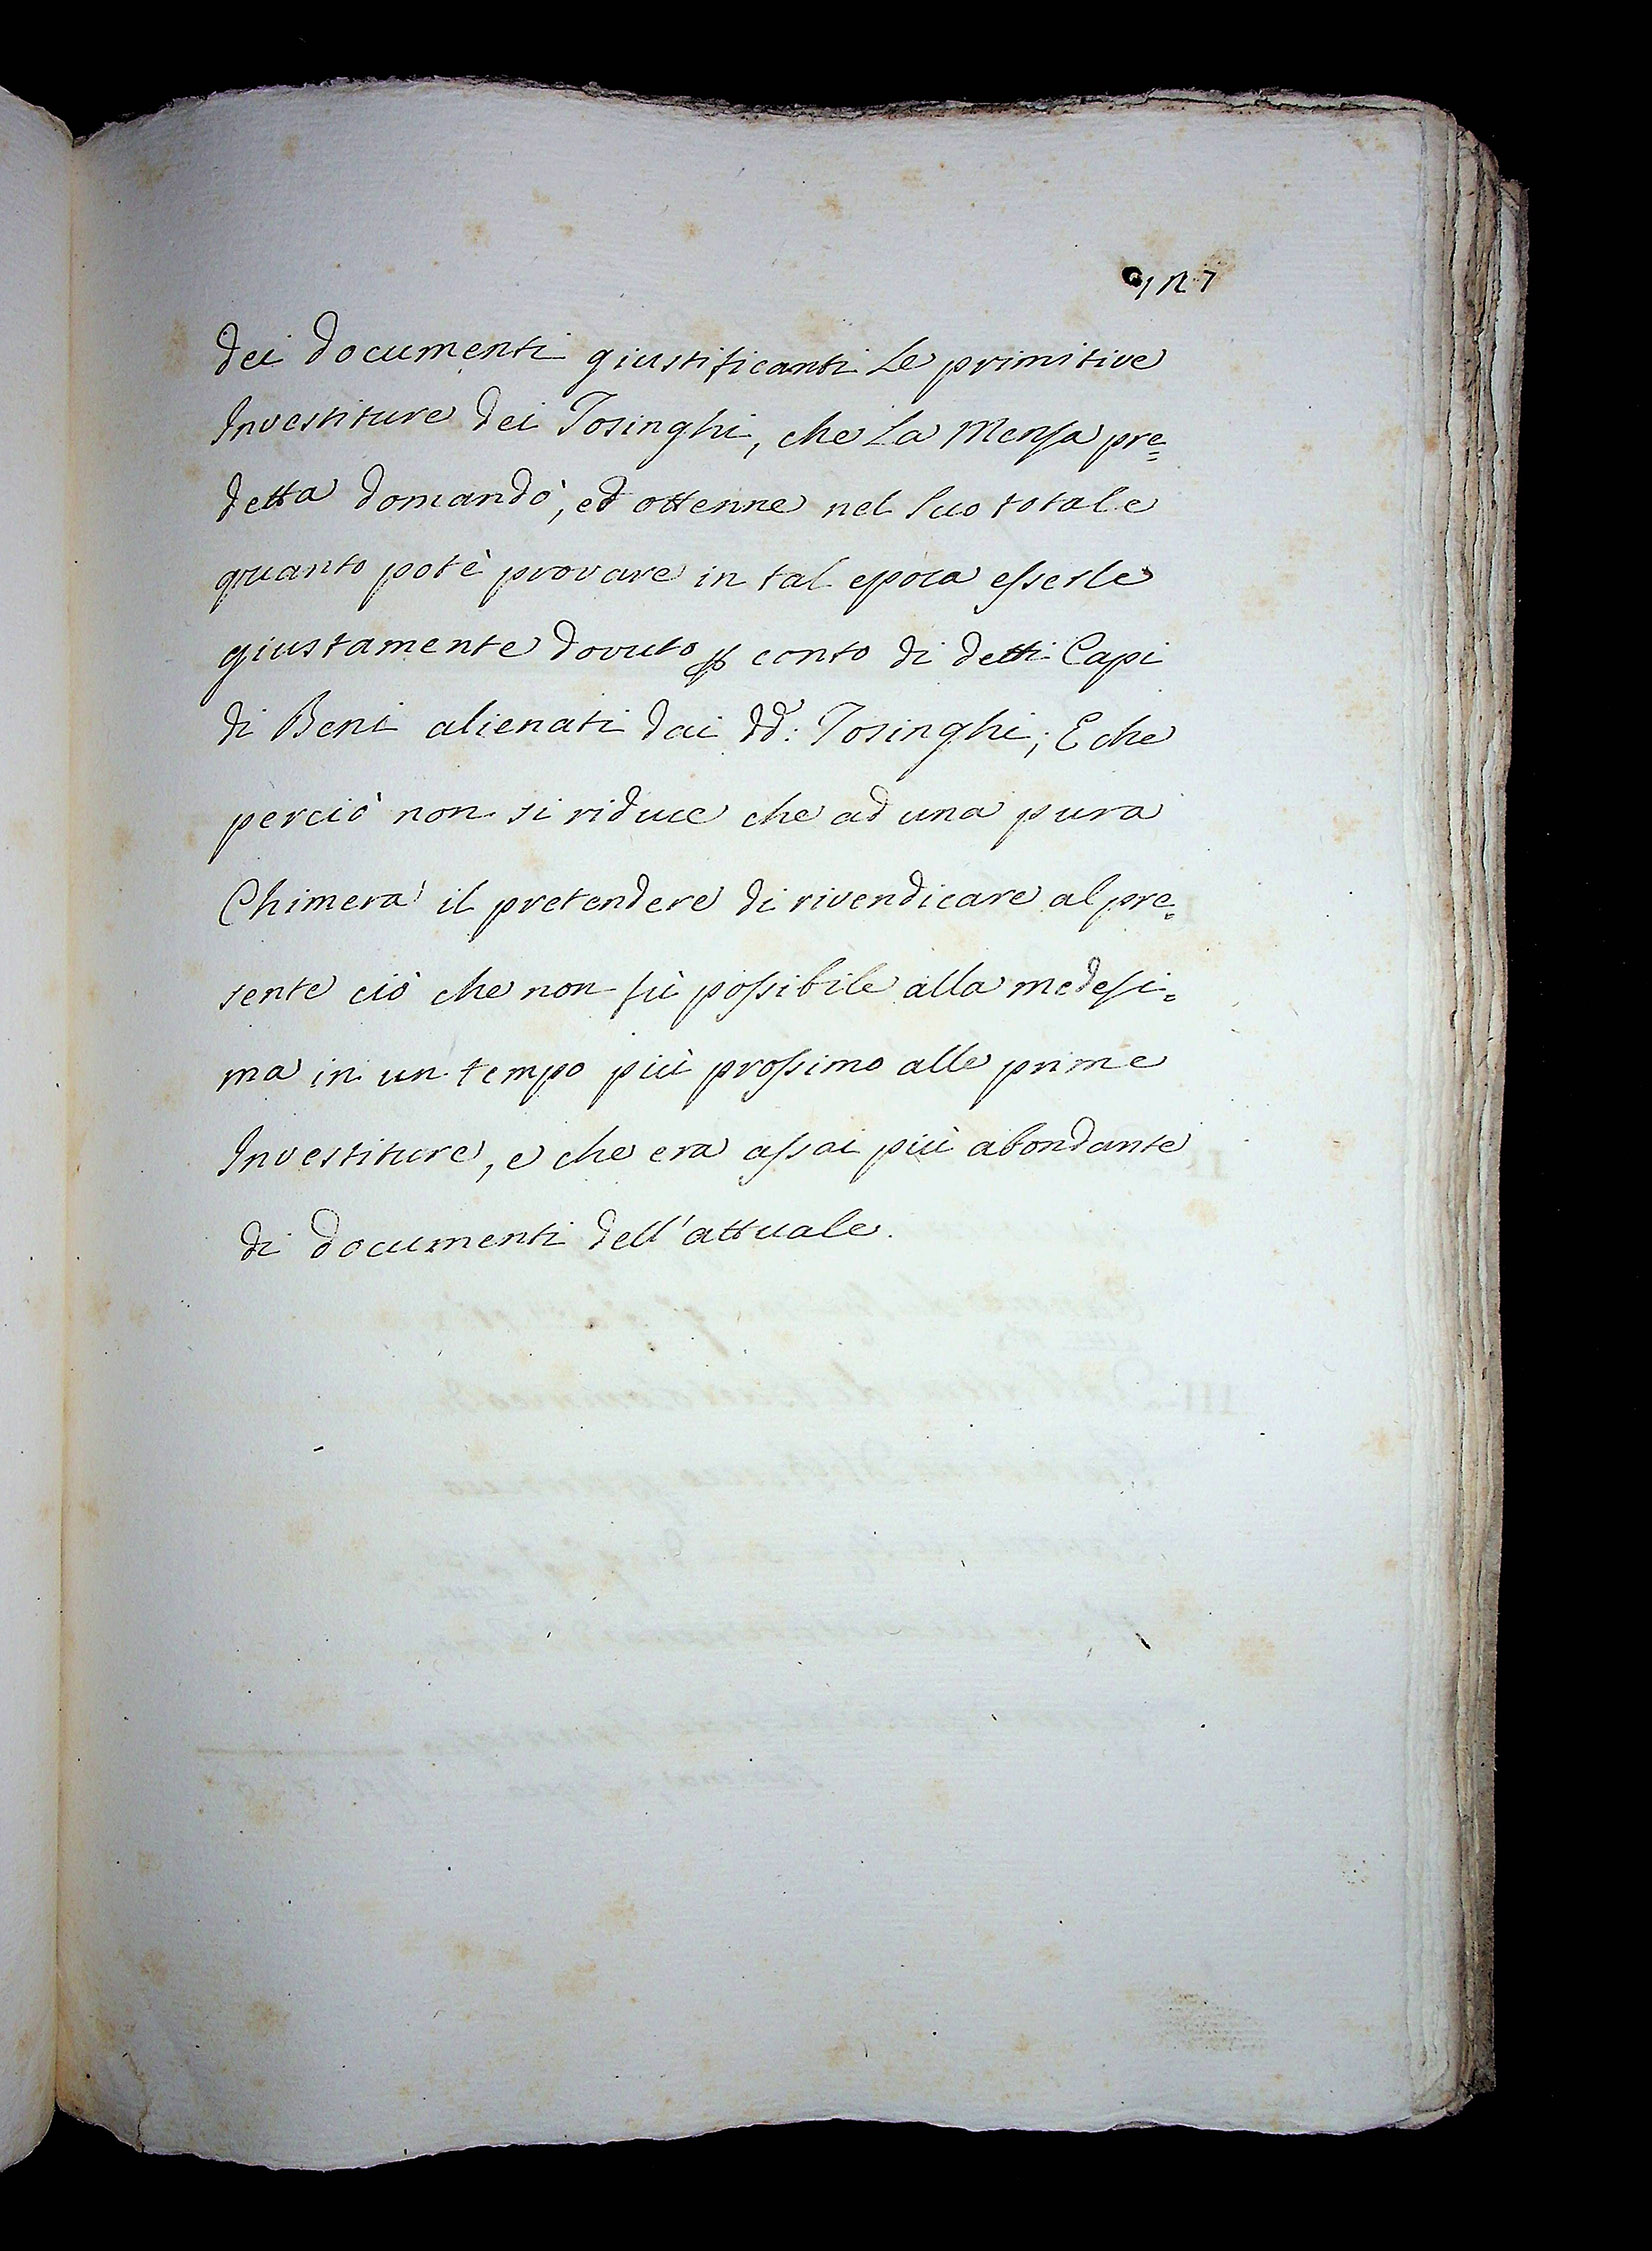 dei documenti giustificanti le primitive
Investiture dei Tosinghi, che la Mensa pre=
detta domandò, ed ottenne nel suo totale
quanto potè provare in tal epoca esserle
giustamente dovuto p conto di detti Capi
di Beni alienati dai dd: Tosinghi; E che
perciò non si riduce che ad una pura
Chimera il pretendere di rivendicare al pre=
sente ciò che non fù possibile alla medesi=
ma in un tempo più prossimo alle prime
Investiture, e che era assai più abondante
di documenti dell'attuale.